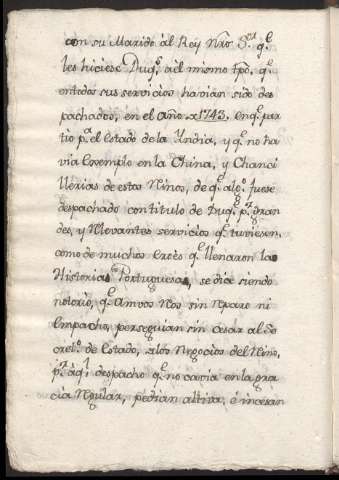 con su Marido ál Rey Nrõ S.or q.e
les hiciese Duq.s aél mismo tpõ, q.e
entodos sus servicios havian sido des
pachados, en el año 1743. enq.e par
tio p.a el Estado de la Yndia, y q.e no ha
via Exemplo en la China, y Chanci
llerias de estos Rinos, de q.e alg.o fuese
despachado con titulo de Duq.e p.r gran
des, y Rlevantes servicios q.e tuviesen,
como de muchos Eroès q.e llenaron las
Historias Portuguesas, se dia siendo
notorio, q.e Amvos Ros sin Rparo ni
Empacho, perseguian sin cesar al Se
cret.o de Estado, alos Ngocios del Rino,
p.r áq.l despacho q.e no cavia en la gra
cia Rgular, pedian altiva, é incesan